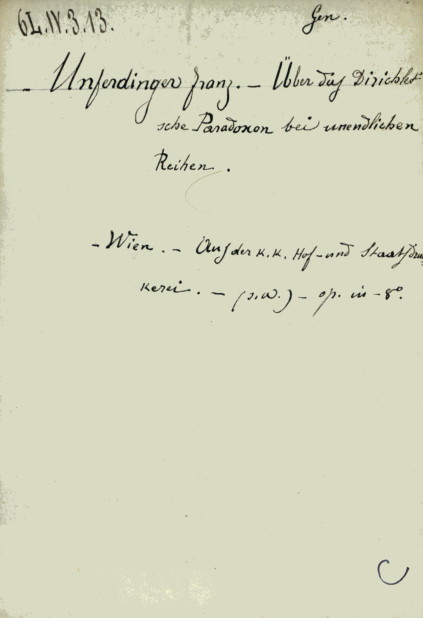 6L.IV.3.13.
Gen.
- Unferdinger franz. - Über das Dirichlet
sche Paradoxon bei unendlichen
Reihen.
- Wien. - Aus der K.K. Hof-und Staatsdruc
kerei. - (s.a.) - op. in - 8º.